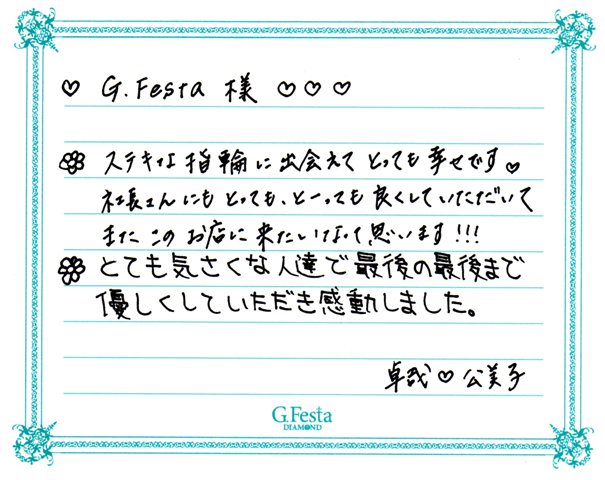 ♡ G.Festa 様 ♡♡♡
ステキな指輪に出会えて とっても幸せです♡
社長さんにも とっても、とーっても 良くしていただいて
また このお店に 来たいなって思います!!!
とても気さくな人達で最後の最後まで
優しくしていただき感動しました。
卓哉♡公美子
G.Festa
DIAMOND